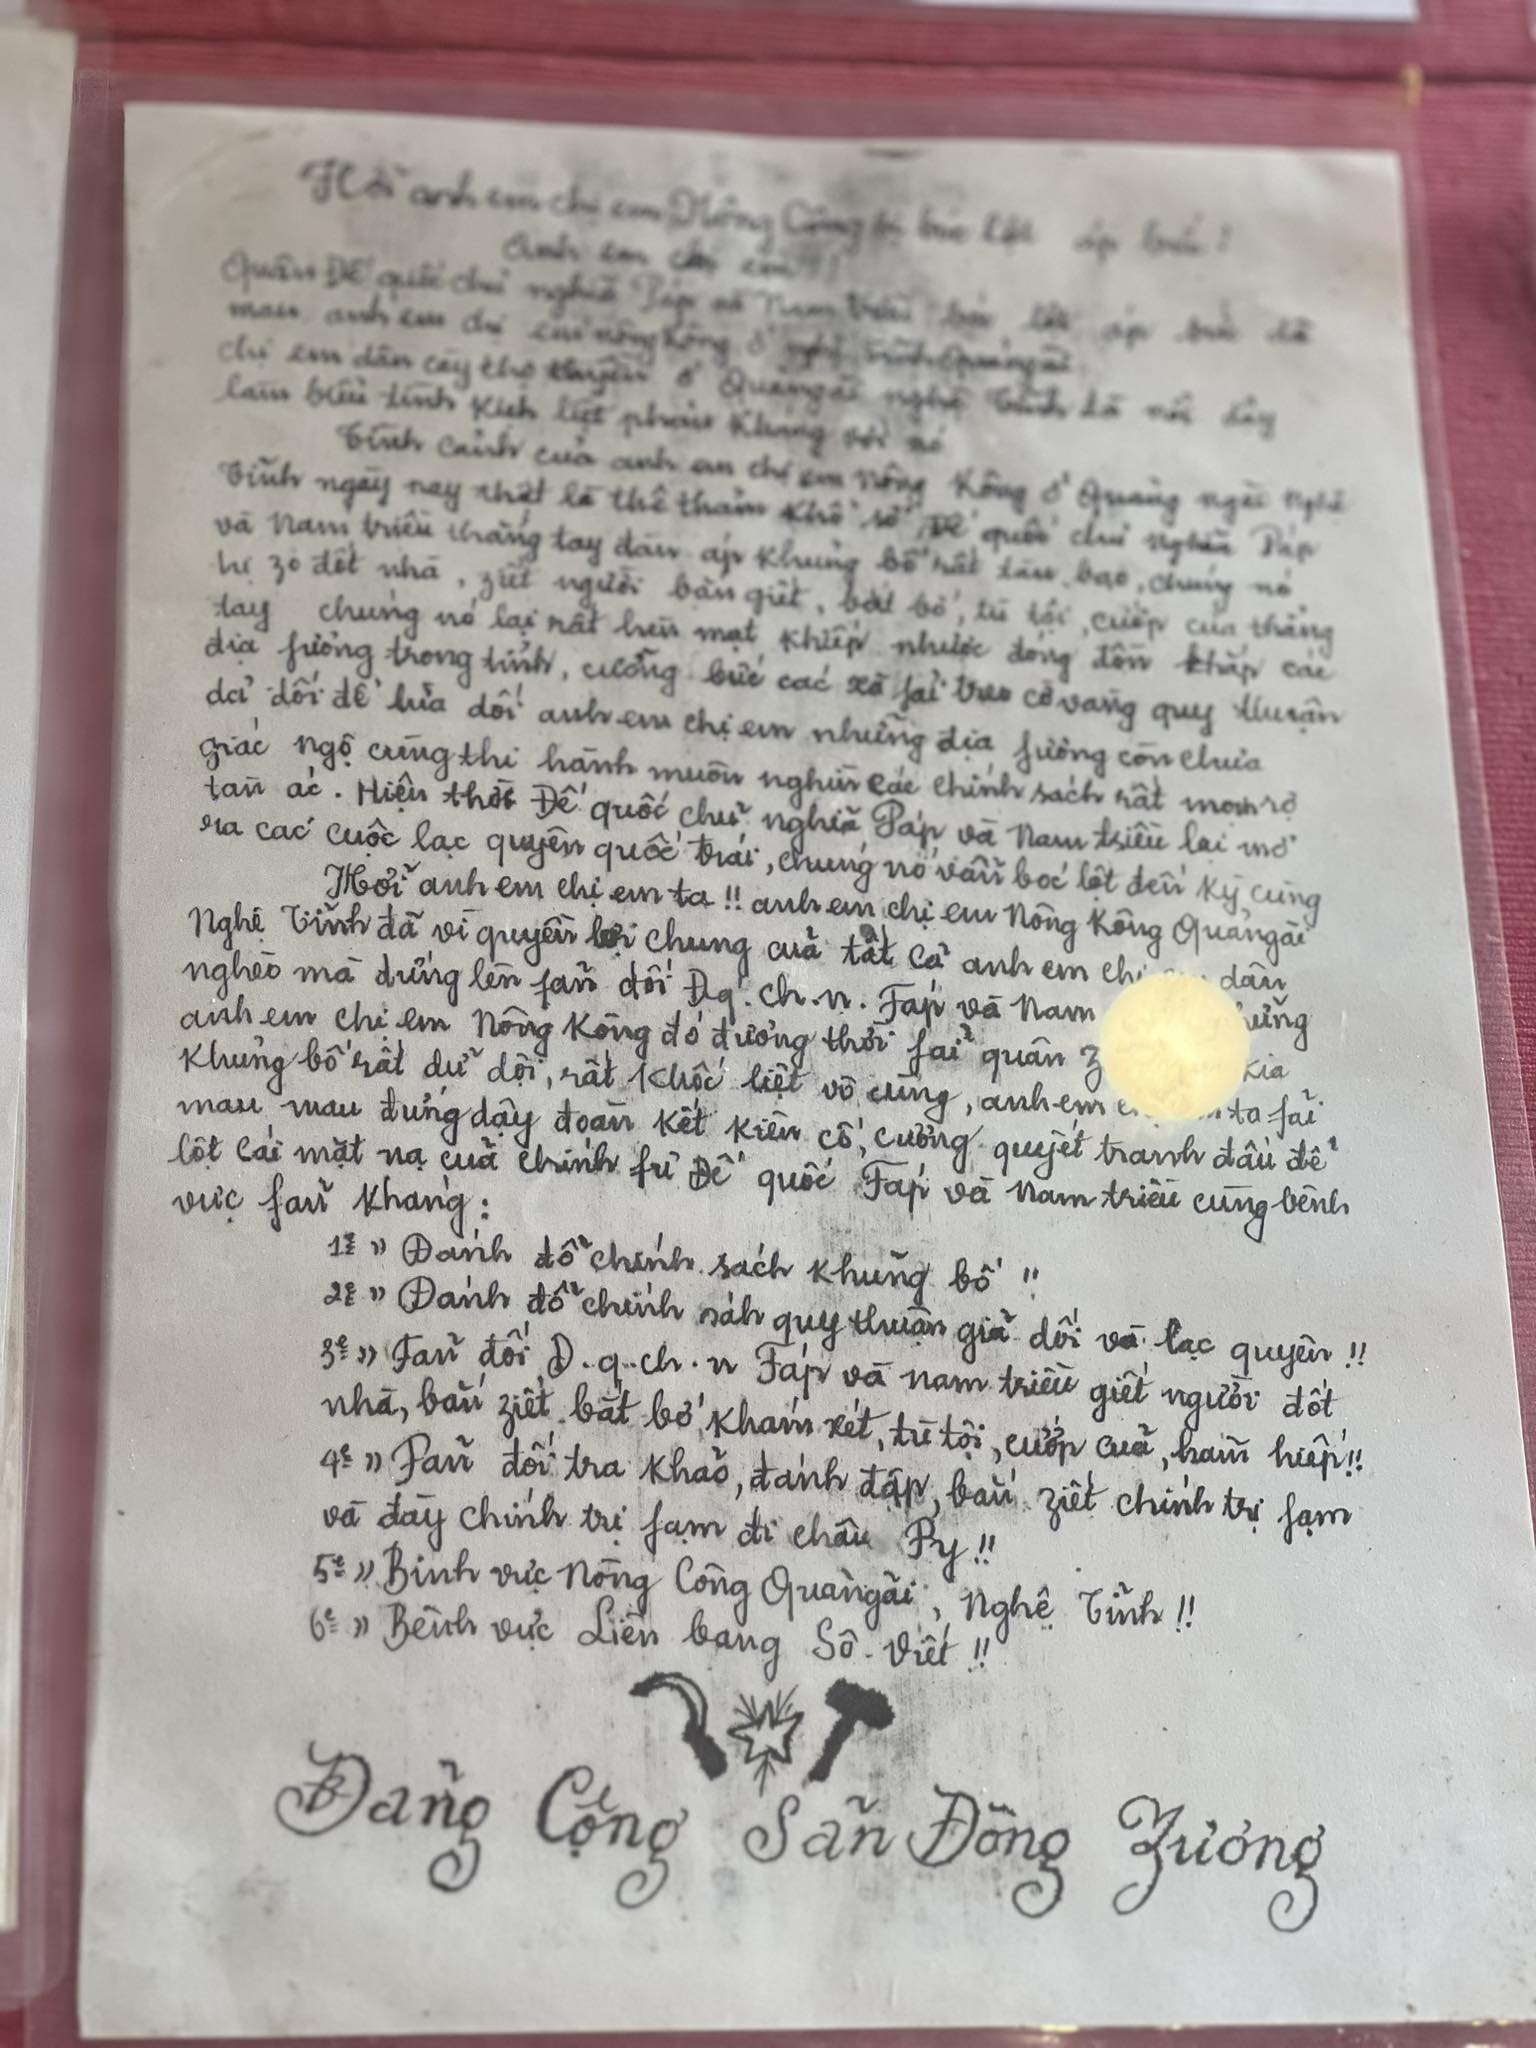 Hỡi anh em chị em Nông Công bị bóc lột áp bức!
Anh em chị em!!!
Quân Đế quốc chủ nghĩa Páp và Nam triều bóc lột áp bức dã
man anh em chị em nông Kông ở nghệ Tĩnh Quảngãi
chị em dân cày thợ thuyền ở Quảngãi nghệ Tĩnh đã nổi dậy
làm biểu tình kịch liệt phản kháng với nó
Tình cảnh của anh em chị em nông Kông ở Quảng ngãi Nghệ
Tĩnh ngày nay thật là thê thảm khổ sở, Đế quốc chủ nghĩa Páp
và Nam triều thẳng tay đàn áp khủng bố rất tàn bạo, chúng nó
hạ zo đốt nhà, ziết người bắn giết, bắt bớ, tù tội, cướp của thẳng
tay chúng nó lại rất hèn mạt khiếp nhược đóng đồn khắp các
địa fương trong tỉnh, cưỡng bức các xã fải treo cờ vàng quy thuận
dả dối để lừa dối anh em chị em những địa fương còn chưa
giác ngộ cùng thi hành muôn nghìn các chính sách rất mọi rợ
tàn ác. Hiện thời Đế quốc chủ nghĩa Páp và Nam triều lại mở
ra các cuộc lạc quyên quốc trái, chúng nó vẫn bóc lột đến kỳ cùng
Hỡi anh em chị em ta!! anh em chị em Nông Kông Quảngãi
Nghệ Tĩnh đã vì quyền lợi chung cuả tất cả anh em chị dân
nghèo mà đứng lên fản đối Đ.q'.ch.n. Fáp và Nam
anh em chị em Nông Kông đó đương thời fải quân z kia
khủng bố rất dữ dội, rất khốc liệt vô cùng, anh em ta fải
mau mau đứng dậy đoàn kết kiên cố, cương quyết tranh đấu để
lột cái mặt nạ cuả chính fủ Đế quốc Fáp và Nam triều cùng bênh
vực fản kháng:
1º » Đánh đổ chính sách khủng bố!!
2º » Đánh đổ chính sáh quy thuận giả dối và lạc quyên!!
3º » Fản đối Đ.q.ch.n Fáp và nam triều giết người đốt
nhà, bắn ziết, bắt bớ, khám xét, tù tội, cướp cuả, hãm hiếp!!
4º » Fản đối tra khảo, đánh đập, bắn ziết chính trị fạm
và đày chính trị fạm đi châu Fy!!
5º » Bình vực Nông Công Quảngãi, Nghệ Tĩnh!!
6º » Bênh vực Liên bang Sô-Viết!!
Đảng Cộng Sản Đông Zương